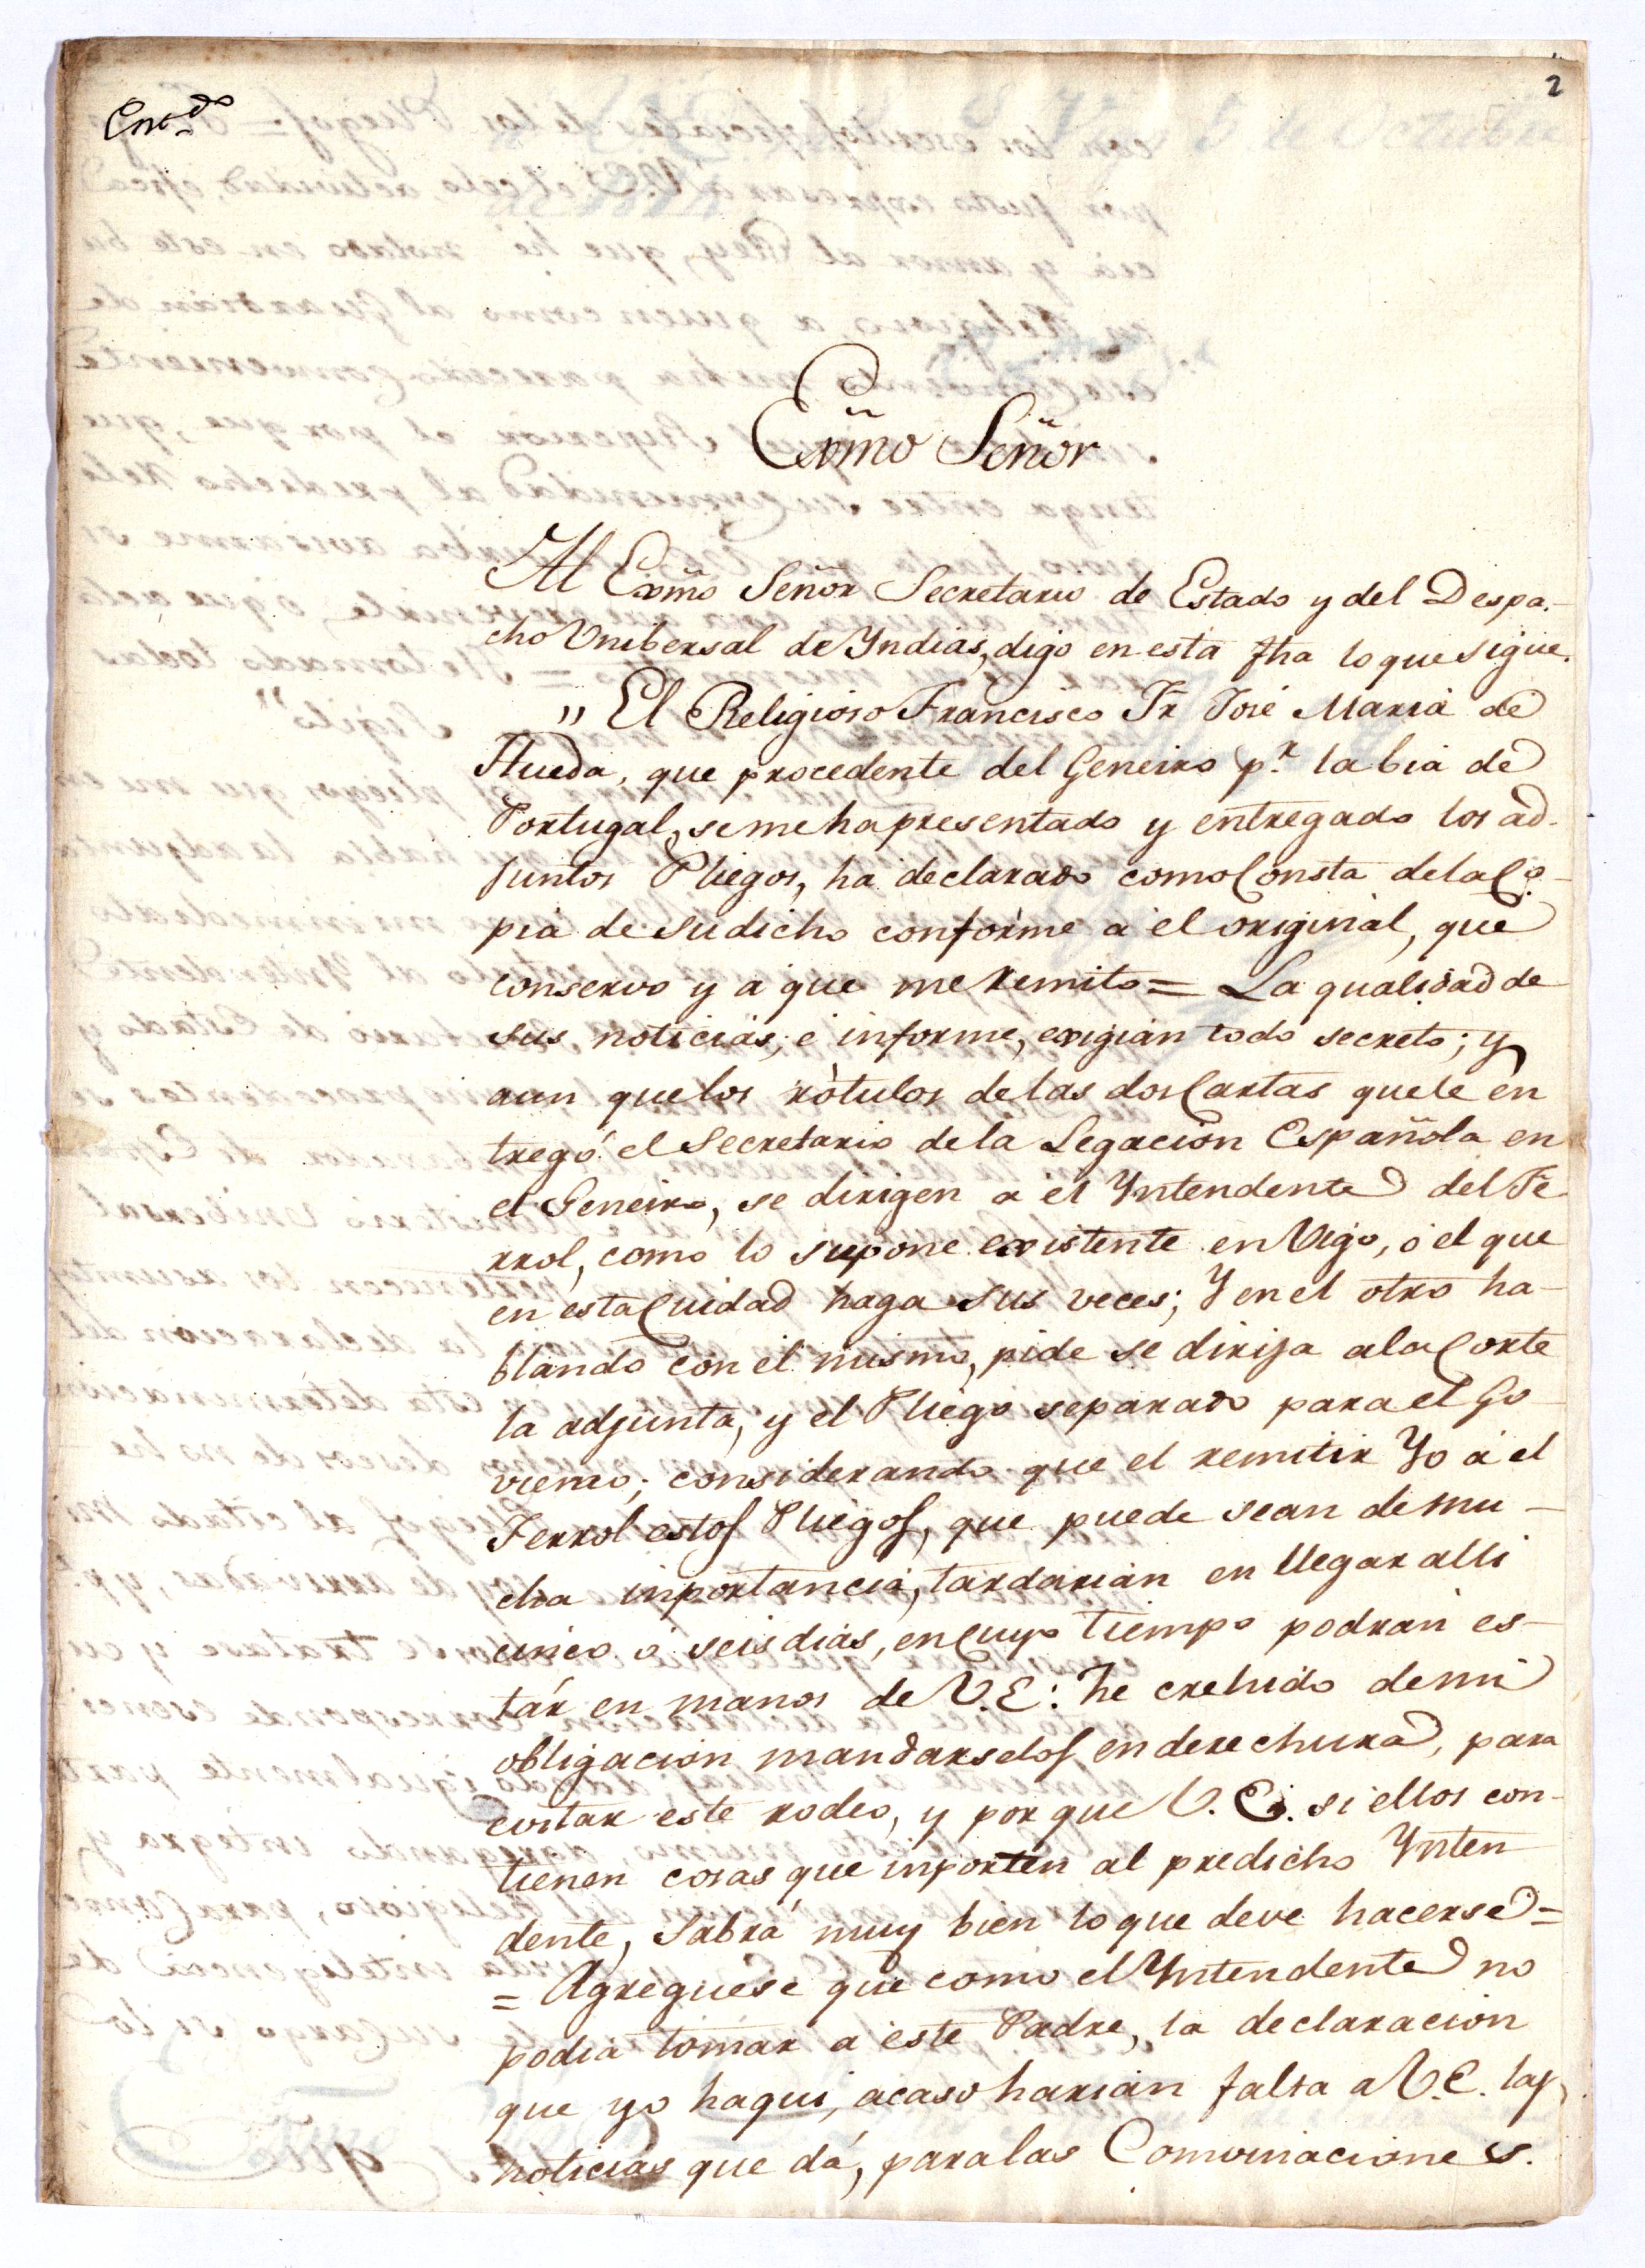 2
Exmo Señor
Al Exmo Señor Secretario de Estado y del Despa-
cho Unibersal de Yndias, digo en esta fha lo que sigue.
" El Religioso Francisco Fr José Maria de
Rueda, que procedente del Geneiro p.r la bia de
Portugal, se me ha presentado y entregado los ad-
juntos Pliegos, ha declarado como Consta de la Co-
pia de su dicho conforme a el original, que
conservo y a que me remito = La qualidad de
sus noticias, é informe, exigian todo secreto; y
aun que los rótulos de las dos Cartas que le en
tregó el Secretario de la Legacion Española en
el Geneiro, se dirigen a el Yntendente del Fe-
rrol, como lo supone existente en Vigo, ó el que
en esta Ciudad haga sus veces; Y en el otro ha-
blando con él mismo, pide se dirija a la Corte
la adjunta, y el Pliego separado para el Go
vierno; considerando que el remitir Yo á el
Ferrol estos Pliegos, que puede sean de mu-
cha inportancia, tardarian en llegar alli
cinco ó seis dias, en Cuyo tiempo podran es-
tár en manos de V.E: he crehido de mi
obligacion mandarselos en derechura, para
evitar este rodeo, y por que V.E. si ellos con-
tienen cosas que inporten al predicho Ynten
dente, Sabrá muy bien lo que deve hacerse =
= Agreguese que como el Yntendente no
podia tomar a este Padre, la declaracion
que yo haqui, acaso harian falta a V.E. las
noticias que dá, para las Comvinaciones.